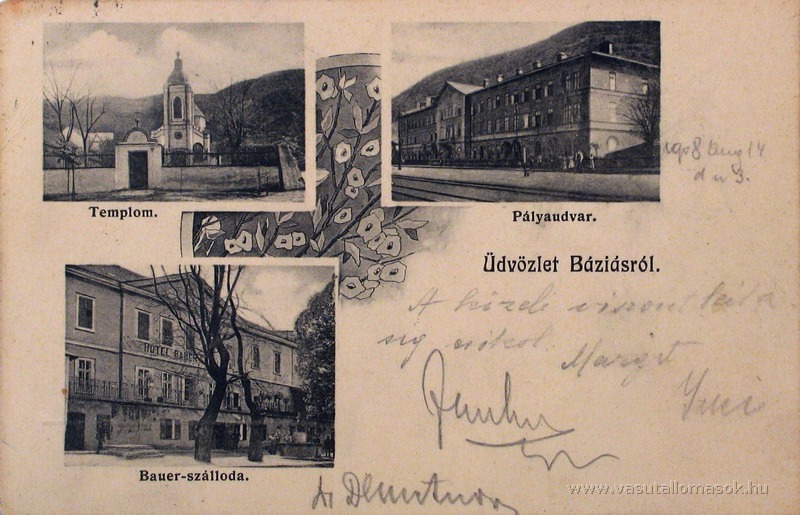 Templom.
Pályaudvar.
1908 Aug 14
d u 3.
Üdvözlet Báziásról.
A közeli viszontlátá
sig csókol
Margit
HOTEL BAUER
Bauer-szálloda.
www.vasutallomasok.hu